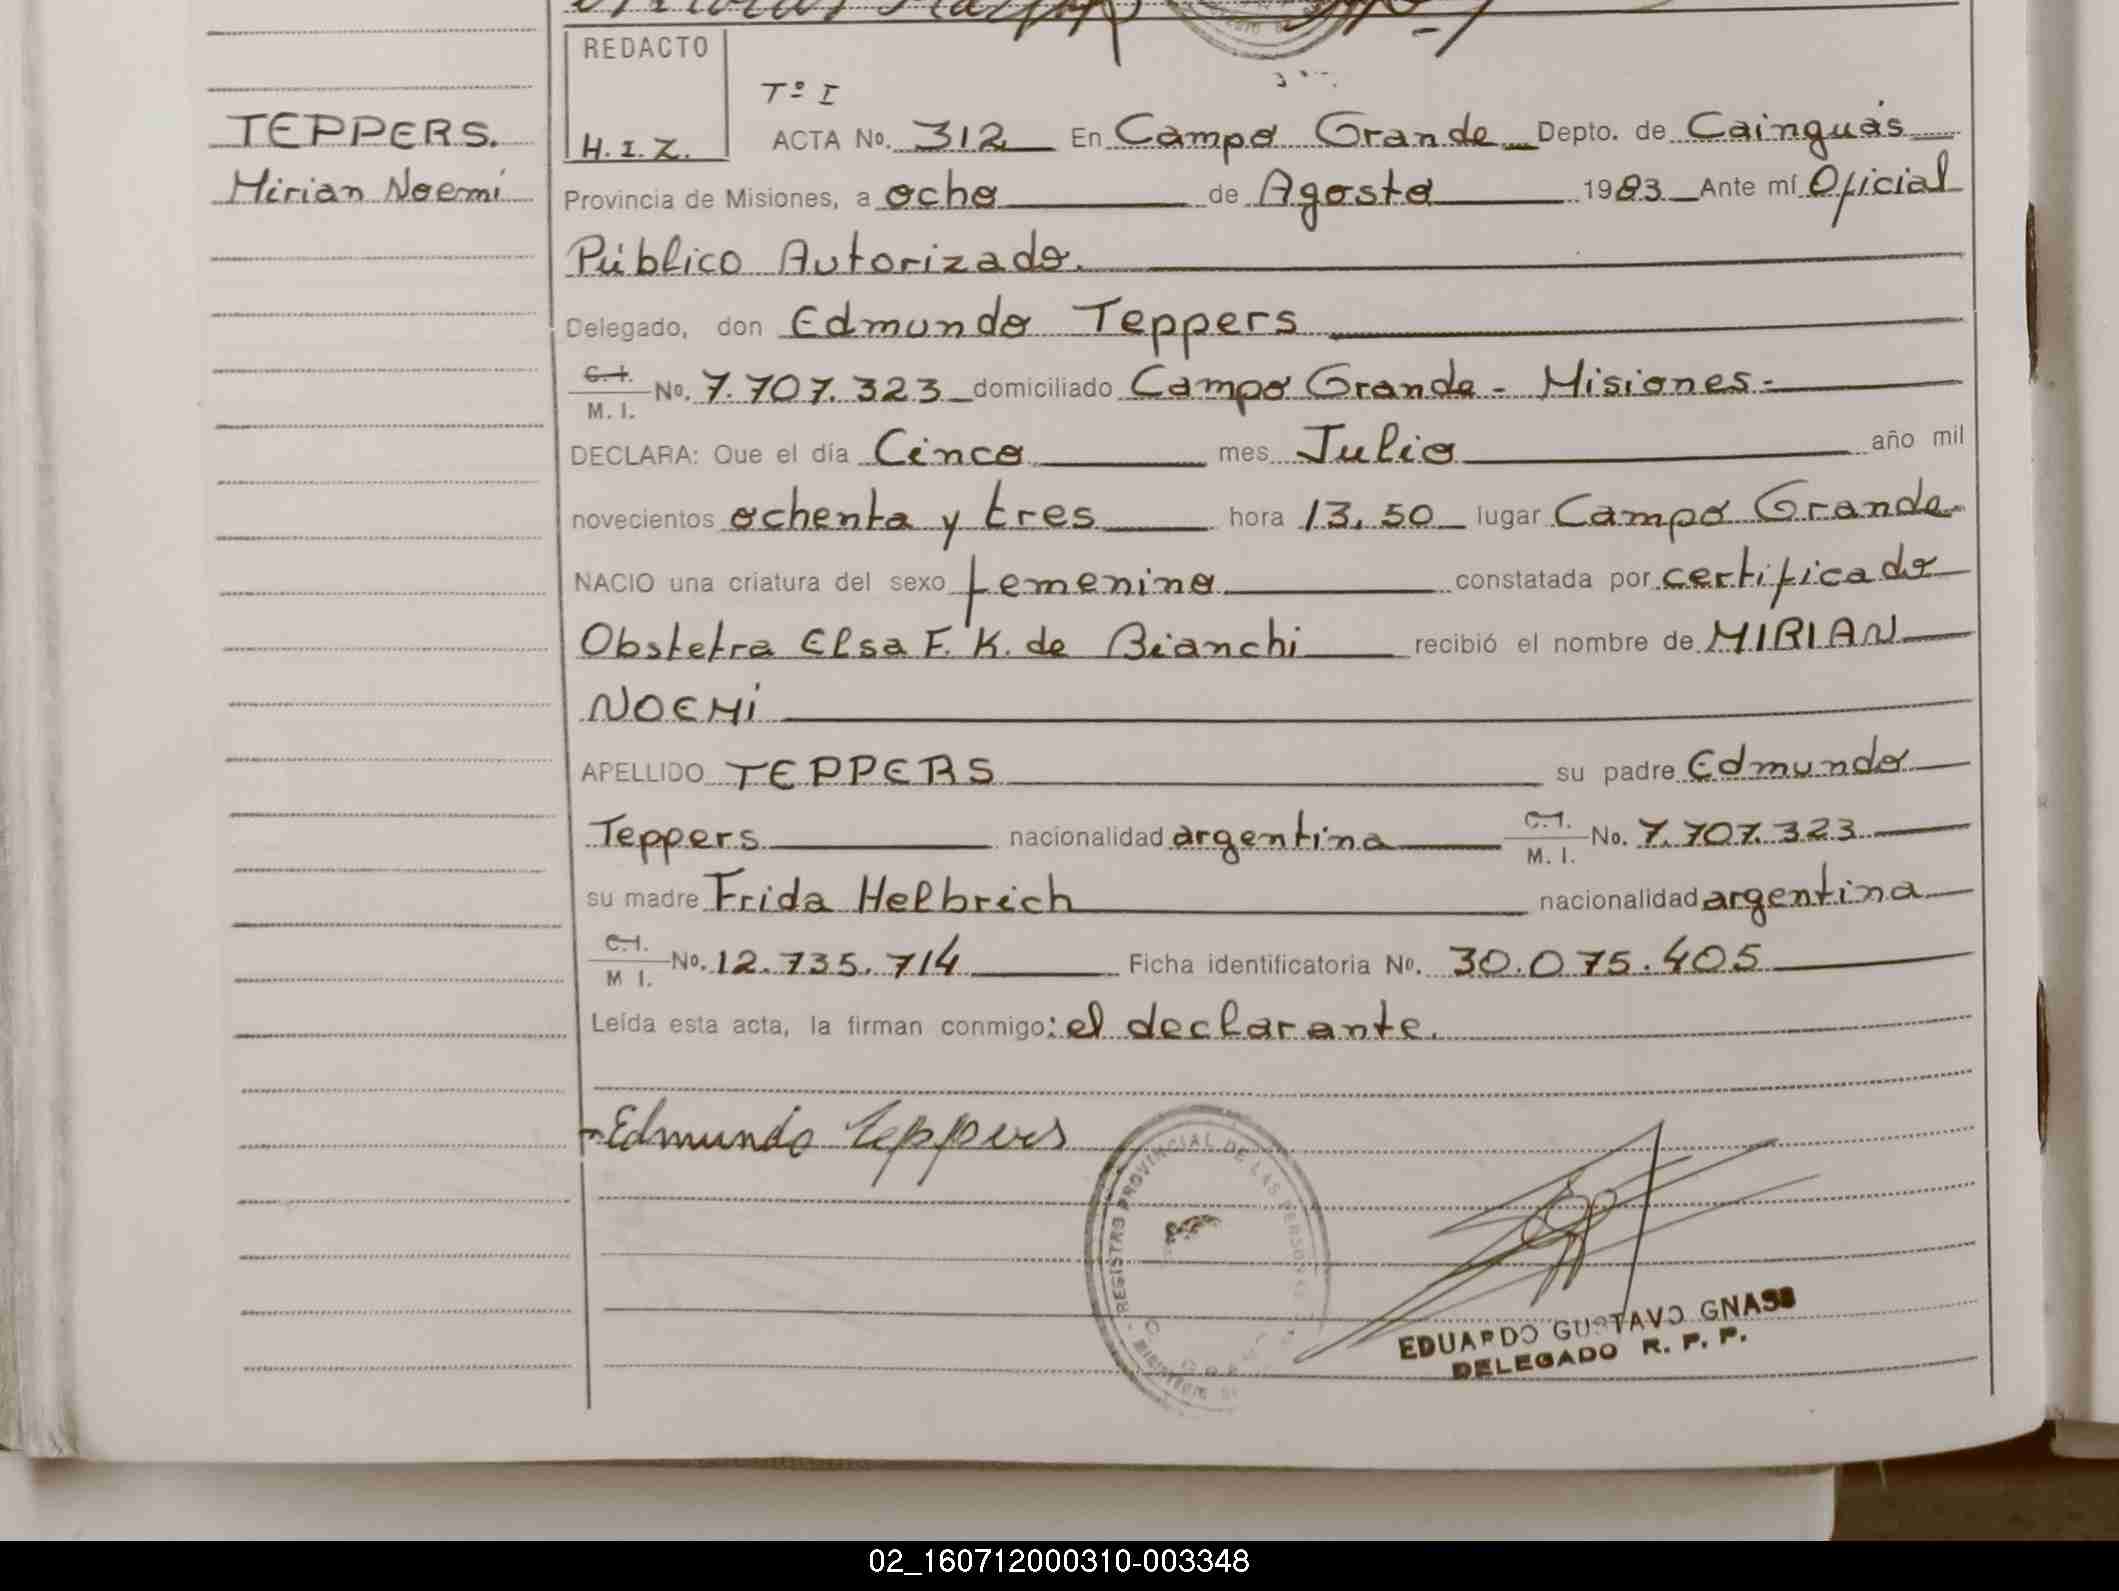 REDACTO
Tº I
TEPPERS.
Mirian Noemí
H. I. Z.
ACTA No. 312 En Campo Grande Depto. de Cainguás
Provincia de Misiones, a ocho de Agosto 1983 Ante mí Oficial
Público Autorizado.
Delegado, don Edmundo Teppers
C. I.
M. I.
No. 7.707.323 domiciliado Campo Grande - Misiones -
DECLARA: Que el día Cinco mes Julio año mil
novecientos ochenta y tres hora 13,50 lugar Campo Grande
NACIO una criatura del sexo femenino constatada por certificado
Obstetra Elsa F. K. de Bianchi recibió el nombre de MIRIAN
NOEMí
APELLIDO TEPPERS su padre Edmundo
Teppers nacionalidad argentina C. I. M. I. No. 7.707.323
su madre Frida Helbrich nacionalidad argentina
C. I.
M I.
No. 12.735.714 Ficha identificatoria No. 30.075.405
Leída esta acta, la firman conmigo: el declarante.
Edmundo Teppers
REGISTRO PROVINCIAL DE LAS PERSONAS
EDUARDO GUSTAVO GNASS
DELEGADO R. P. P.
02_160712000310-003348